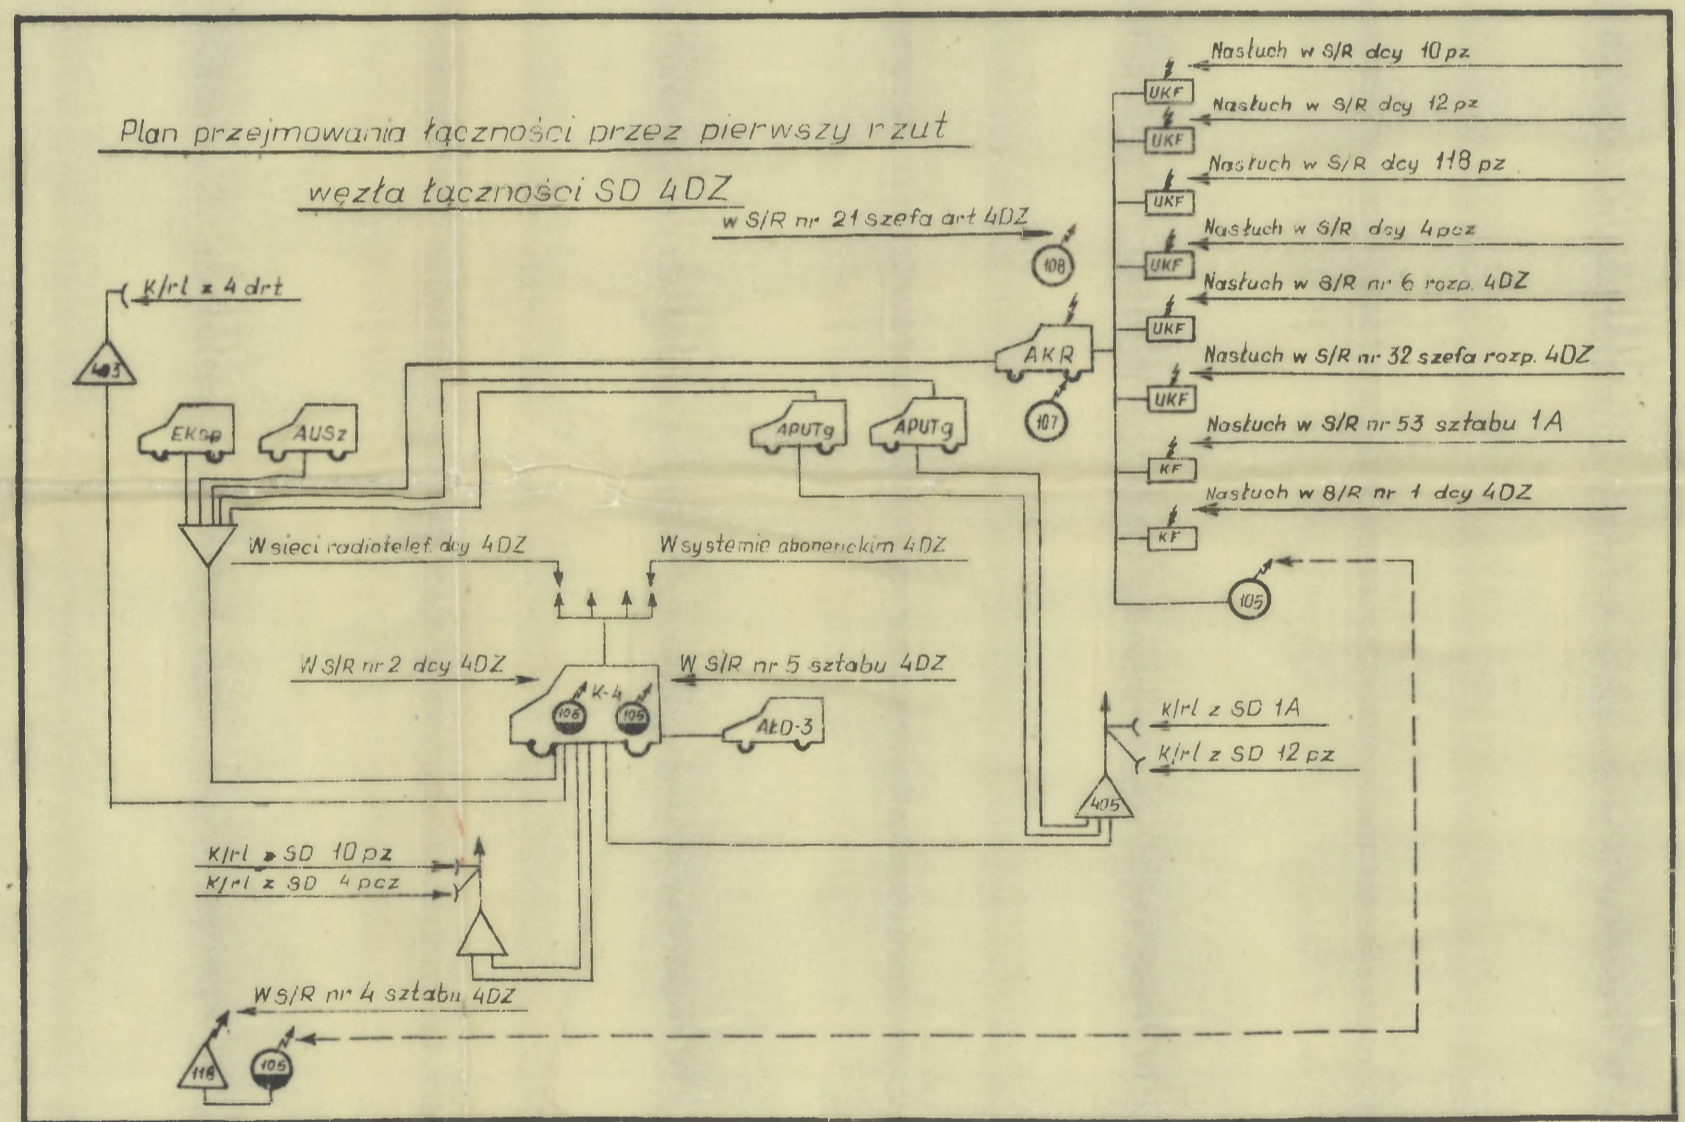 Plan przejmowania łączności przez pierwszy rzut
węzła łączności SD 4DZ
w S/R nr 21 szefa art 4DZ
108
Nasłuch w S/R dcy 10 pz
UKF
Nasłuch w S/R dcy 12 pz
UKF
Nasłuch w S/R dcy 118 pz
UKF
Nasłuch w S/R dcy 4 pcz
UKF
Nasłuch w S/R nr 6 rozp. 4DZ
UKF
Nasłuch w S/R nr 32 szefa rozp. 4DZ
UKF
Nasłuch w S/R nr 53 sztabu 1A
KF
Nasłuch w S/R nr 1 dcy 4DZ
KF
105
K/rl z 4 drt
403
EKSp
AUSz
APUTg
APUTg
AKR
107
W sieci radiotelef. dcy 4DZ
W systemie abonenckim 4DZ
W S/R nr 2 dcy 4DZ
W S/R nr 5 sztabu 4DZ
K-4
106
105
AŁD-3
K/rl z SD 1A
K/rl z SD 12 pz
405
K/rl z SD 10 pz
K/rl z SD 4 pcz
W S/R nr 4 sztabu 4DZ
118
105